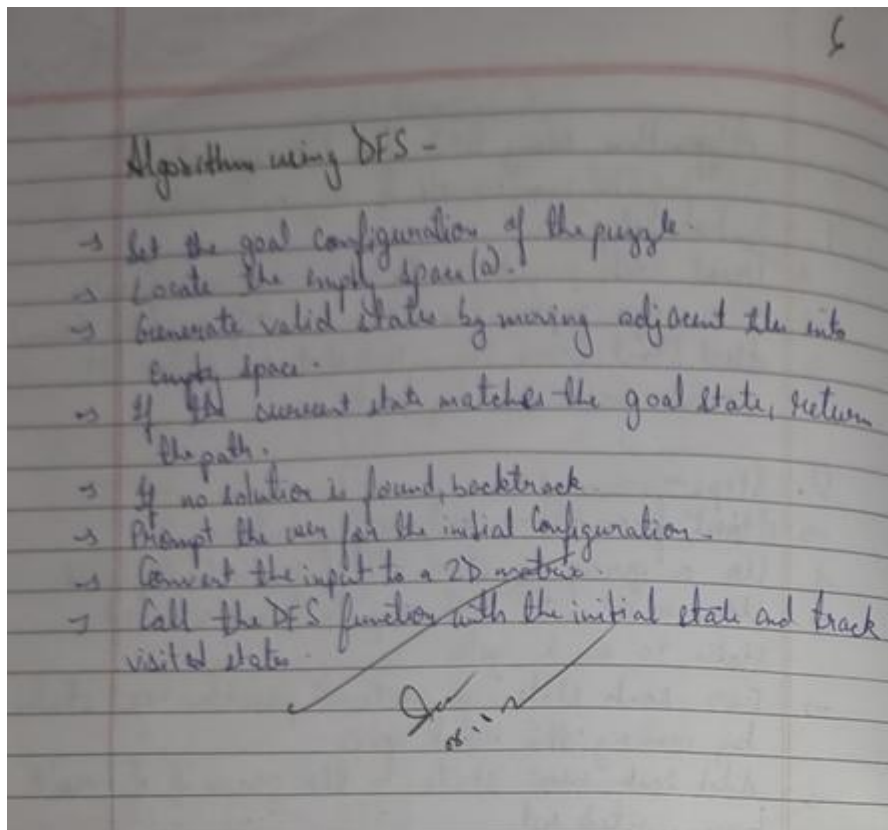 6
Algorithm using DFS -
→ Set the goal configuration of the puzzle.
→ Locate the empty space (0).
→ Generate valid states by moving adjacent tiles into
empty space.
→ If the current state matches the goal state, return
the path.
→ If no solution is found, backtrack.
→ Prompt the user for the initial Configuration.
→ Convert the input to a 2D matrix.
→ Call the DFS function with the initial state and track
visited states.